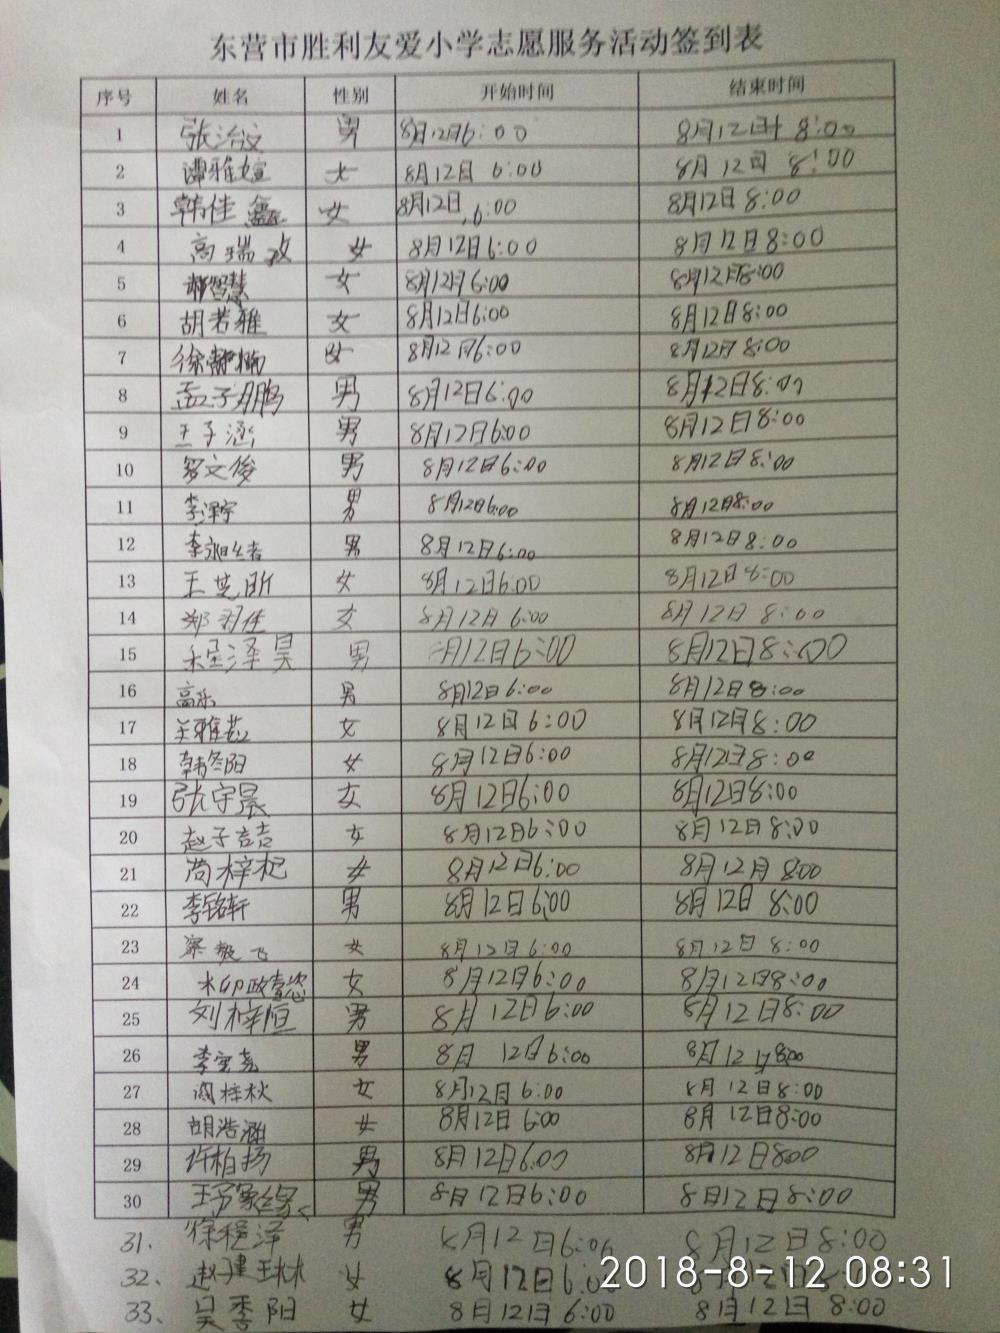 东营市胜利友爱小学志愿服务活动签到表
序号 姓名 性别 开始时间 结束时间
1 张治文 男 8月12日6:00 8月12日 8:00
2 谭雅媗 女 8月12日 6:00 8月12日 8:00
3 韩佳鑫 女 8月12日 6:00 8月12日 8:00
4 高瑞 女 8月12日6:00 8月12日8:00
5 智慧 女 8月12日6:00 8月12日8:00
6 胡若雅 女 8月12日6:00 8月12日8:00
7 徐 女 8月12日6:00 8月12日8:00
8 孟子鹏 男 8月12日6:00 8月12日8:00
9 王子涵 男 8月12日6:00 8月12日8:00
10 罗文俊 男 8月12日6:00 8月12日8:00
11 李泽宇 男 8月12日6:00 8月12日8:00
12 李 男 8月12日6:00 8月12日8:00
13 王芝昕 女 8月12日6:00 8月12日8:00
14 郑羽佳 女 8月12日 6:00 8月12日 8:00
15 程泽昊 男 月12日6:00 8月12日8:00
16 高乐 男 8月12日6:00 8月12日8:00
17 雅 女 8月12日6:00 8月12日8:00
18 韩冬阳 女 8月12日6:00 8月12日8:00
19 张宇晨 女 8月12日6:00 8月12日8:00
20 赵子喆 女 8月12日6:00 8月12日8:00
21 尚梓杞 女 8月12日6:00 8月12月 8:00
22 李铭轩 男 8月12日6:00 8月12日 8:00
23 飞 女 8月12日6:00 8月12日 8:00
24 女 8月12日6:00 8月12日8:00
25 刘梓恒 男 8月12日6:00 8月12日8:00
26 李 男 8月 12日6:00 8月12日8:00
27 阎梓秋 女 8月12日 6:00 8月12日8:00
28 胡浩涵 女 8月12日 6:00 8月12日8:00
29 许柏扬 男 8月12日6:00 8月12日8:00
30 王 男 8月12日6:00 8月12日8:00
31. 徐程泽 男 月12日6:00 8月12日8:00
32. 赵 女 8月12日6:00
2018-8-12 08:31
33. 吴季阳 女 8月12日 6:00 8月12日 8:00